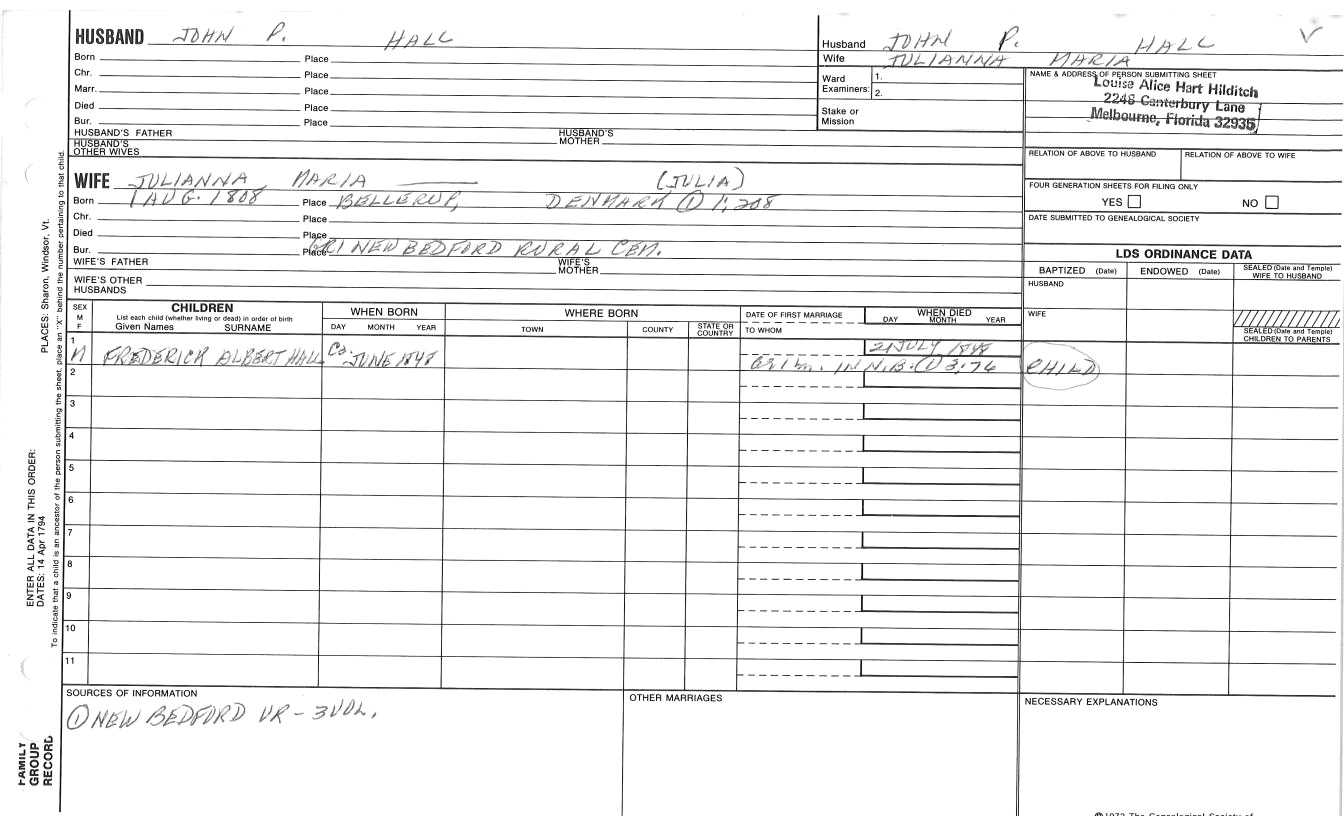 HUSBAND JOHN P. HALL
Born Place
Chr. Place
Marr. Place
Died Place
Bur. Place
HUSBAND'S FATHER HUSBAND'S MOTHER
HUSBAND'S OTHER WIVES
WIFE JULIANNA MARIA (JULIA)
Born 1 AUG. 1808 Place BELLERUP, DENMARK ① 1:208
Chr. Place
Died Place
Bur. Place NEW BEDFORD RURAL CEM.
WIFE'S FATHER WIFE'S MOTHER
WIFE'S OTHER HUSBANDS
Husband JOHN P. HALL
Wife JULIANNA MARIA
Ward Examiners: 1.
2.
Stake or Mission
NAME & ADDRESS OF PERSON SUBMITTING SHEET
Louise Alice Hart Hilditch
2248 Canterbury Lane
Melbourne, Florida 32935
RELATION OF ABOVE TO HUSBAND RELATION OF ABOVE TO WIFE
FOUR GENERATION SHEETS FOR FILING ONLY
YES NO
DATE SUBMITTED TO GENEALOGICAL SOCIETY
LDS ORDINANCE DATA
BAPTIZED (Date) ENDOWED (Date) SEALED (Date and Temple) WIFE TO HUSBAND
HUSBAND
WIFE
SEALED (Date and Temple) CHILDREN TO PARENTS
SEX M F
CHILDREN
List each child (whether living or dead) in order of birth
Given Names SURNAME
WHEN BORN
DAY MONTH YEAR
WHERE BORN
TOWN COUNTY STATE OR COUNTRY
DATE OF FIRST MARRIAGE
TO WHOM
WHEN DIED
DAY MONTH YEAR
1 M FREDERICK ALBERT HALL Ca. JUNE 1848 21 JULY 1848
IN N.B. ① 3:76 CHILD
2
3
4
5
6
7
8
9
10
11
SOURCES OF INFORMATION
① NEW BEDFORD VR - 3 VOL.
OTHER MARRIAGES
NECESSARY EXPLANATIONS
PLACES: Sharon, Windsor, Vt.
ENTER ALL DATA IN THIS ORDER:
DATES: 14 Apr 1794
To indicate that a child is an ancestor of the person submitting the sheet, place an "X" behind the number pertaining to that child.
FAMILY GROUP RECORD